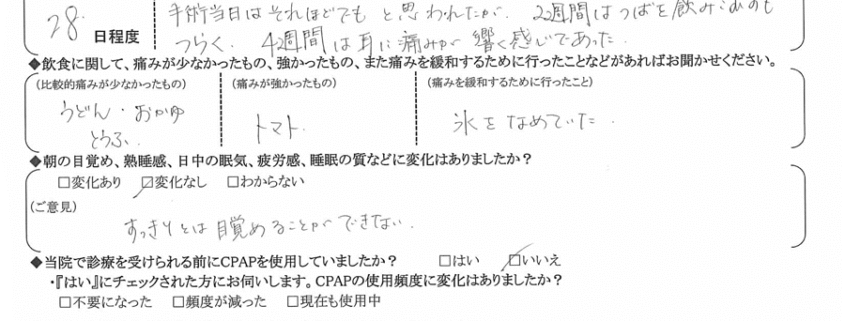 28 日程度
手術当日はそれほどでもと思われたが、2週間はつばを飲みこむのも
つらく、4週間は耳に痛みが響く感じであった.
◆飲食に関して、痛みが少なかったもの、強かったもの、また痛みを緩和するために行ったことなどがあればお聞かせください。
(比較的痛みが少なかったもの) (痛みが強かったもの) (痛みを緩和するために行ったこと)
うどん・おかゆ
とうふ. トマト. 氷をなめていた.
◆朝の目覚め、熟睡感、日中の眠気、疲労感、睡眠の質などに変化はありましたか?
□変化あり ☑変化なし □わからない
(ご意見)
すっきりとは目覚めることができない.
◆当院で診療を受けられる前にCPAPを使用していましたか? □はい ☑いいえ
・『はい』にチェックされた方にお伺いします。CPAPの使用頻度に変化はありましたか?
□不要になった □頻度が減った □現在も使用中